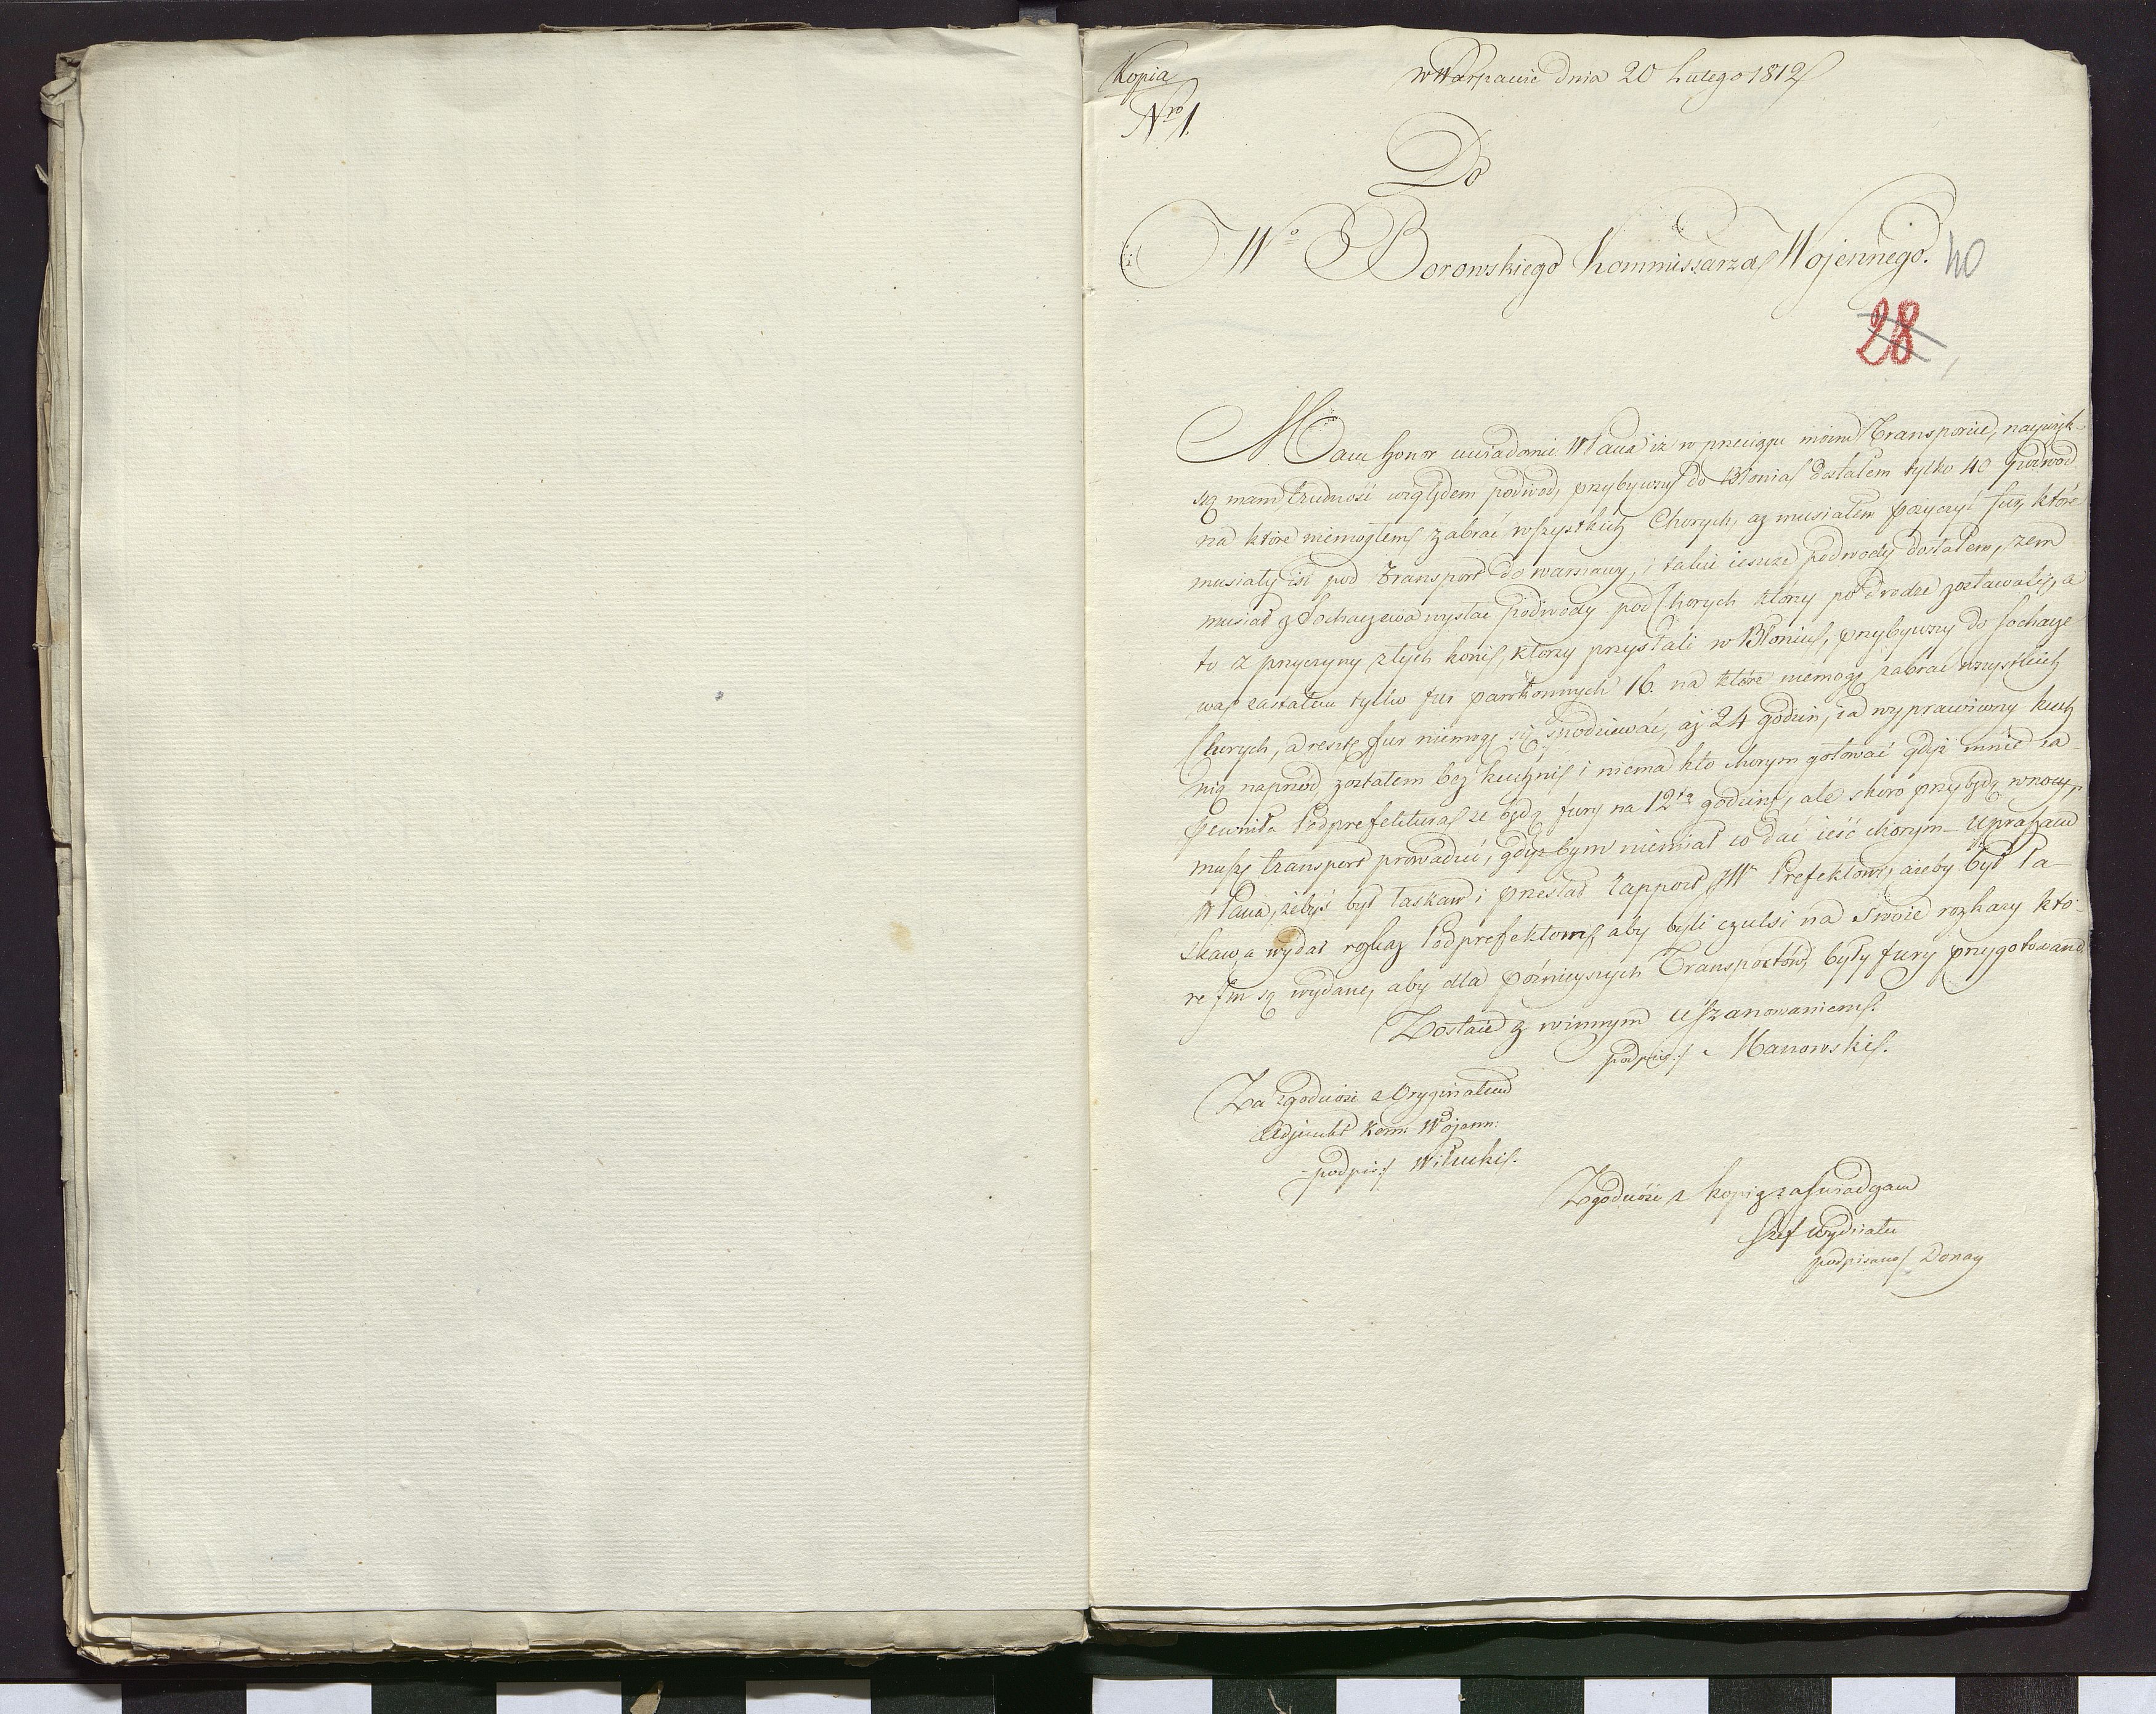 Kopia
Nro 1.
w Warszawie dnia 20 Lutego 1812
Do
JWo Borowskiego Kommissarza Wojennego.
40
28
Mam honor uwiadomić WPana iż w przeciągu moim Transporcie, najwięk-
szą mam trudność względem podwod, przybywszy do Błonia dostałem tylko 40 podwod
na które niemogłem zabrać wszystkich Chorych, aż musiałem pożyczyć fur, które
musiały iść pod transport do Warszawy, i takie ieszcze podwody dostałem, żem
musiał z Sochaczewa wysłać podwody pod Chorych którzy po drodze zostawali, a
to z przyczyny złych koni, ktorzy przystali w Błoniu, przybywszy do Sochacze
wa zastałem tylko fur parokonnych 16. na które niemogę zabrać wszystkich
Chorych, a resztę fur niemogę się spodziewać, aż 24 godzin, ia wyprawiwszy kuch
nią naprzód, zostałem bez kuchni i niema kto chorym gotować gdyż mnie za-
pewniła Podprefektura że będą fury na 12tą godzinę, ale skoro przybędą w nocy,
muszę transport prowadzić, gdyż bym niemiał co dać ieść chorym – Upraszam
WPana, żebyś był łaskaw i przesłał rapport JW Prefektowi, ażeby był ła-
skaw, a wydał rozkaz Podprefektom, aby byli czulsi na swoie rozkazy któ-
re Im są wydane, aby dla póżnieyszych Transportów, były fury przygotowane.
Zostaię z winnym uszanowaniem.
podpis: Manowski.
Za zgodność z Oryginałem
Adjunkt Kom: Wojenn:
podpis: Wiłucki.
Zgodność z kopią zaświadczam
Szef wydziału
podpisano Donay